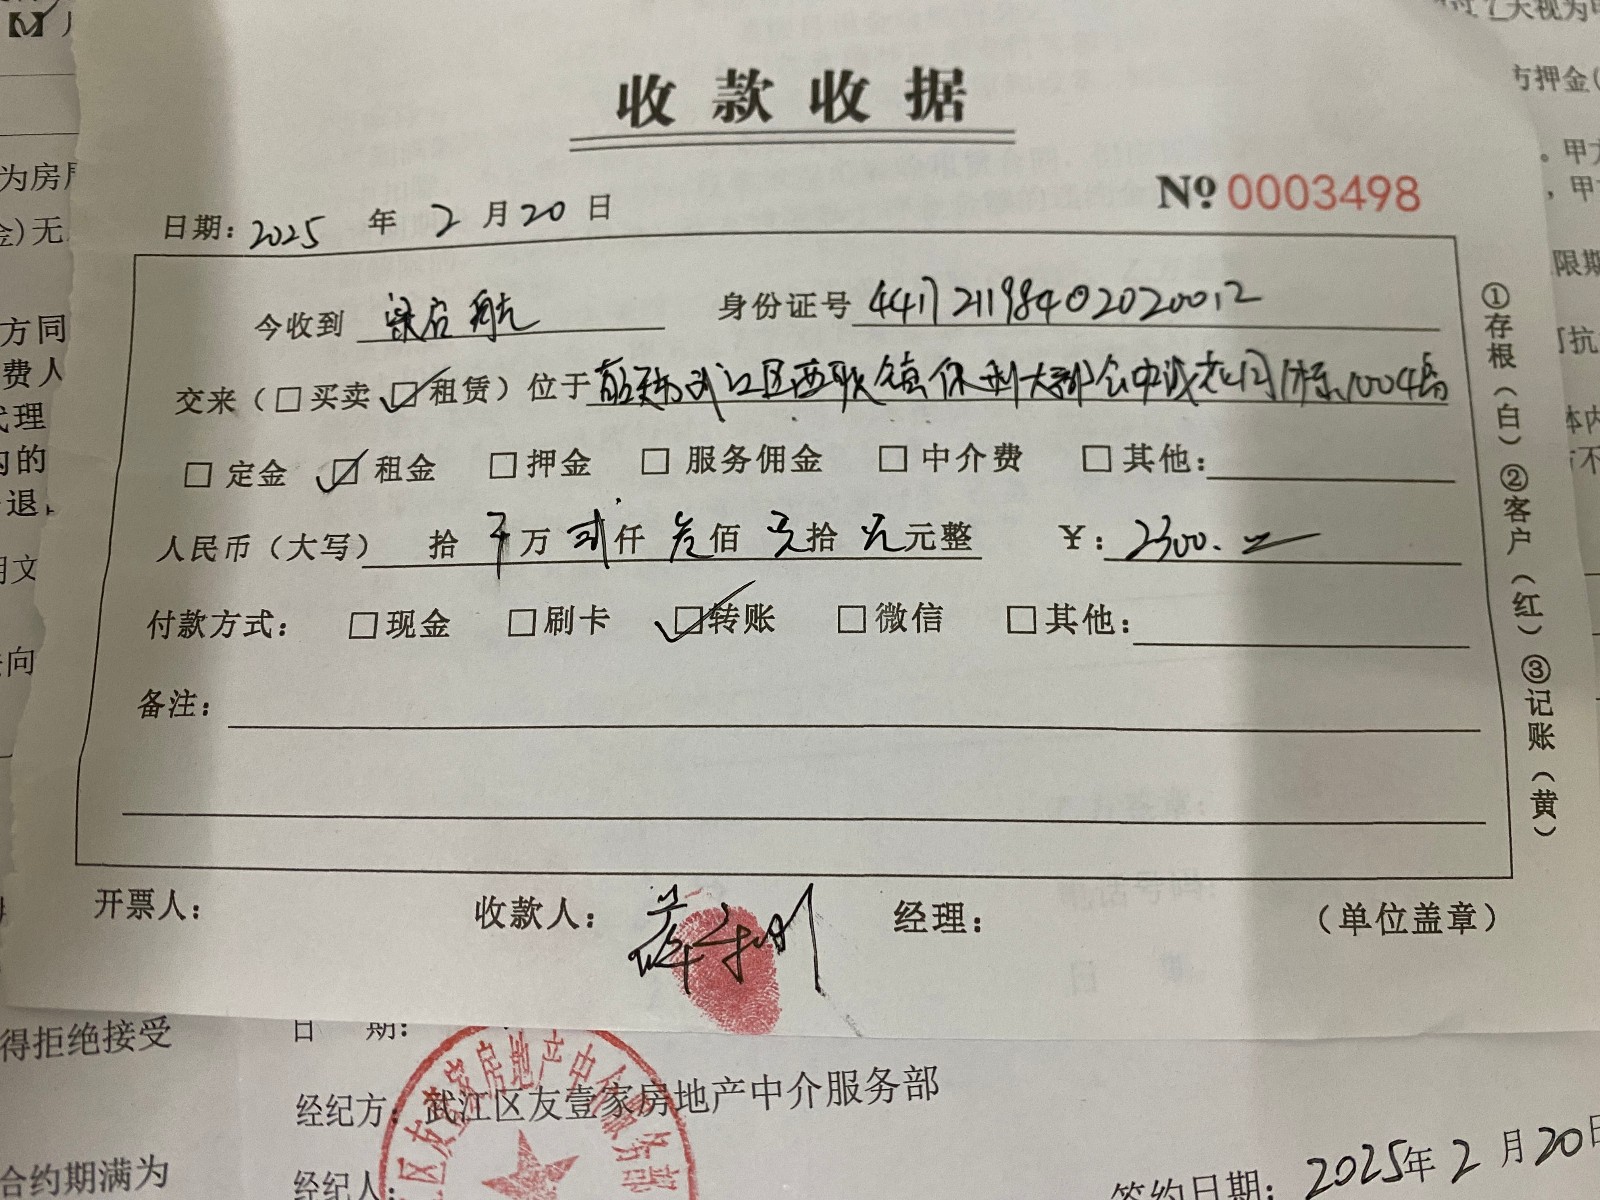 收款收据
№ 0003498
日期: 2025 年 2 月 20 日
今收到 梁启航 身份证号 441721198402020012
交来（□买卖 ☑租赁）位于 韶关市武江区西联镇保利大都会中 花园 1004房
□ 定金 ☑ 租金 □ 押金 □ 服务佣金 □ 中介费 □ 其他:
人民币（大写） 拾 万 贰仟 叁佰 元拾 元整 ￥: 2300.
付款方式: □现金 □刷卡 ☑转账 □微信 □其他:
备注:
开票人: 收款人: 经理: （单位盖章）
①存根（白）②客户（红）③记账（黄）
天视为
方押金(
。甲方
，甲
限期
可抗
体内
为房屋
金)无
方同
费人
代理
内的
退
期文
向
得拒绝接受
合约期满为
日 期:
经纪方: 武江区友壹家房地产中介服务部
经纪人:
区友壹家房地产中介服务部
签约日期: 2025年 2 月 20日